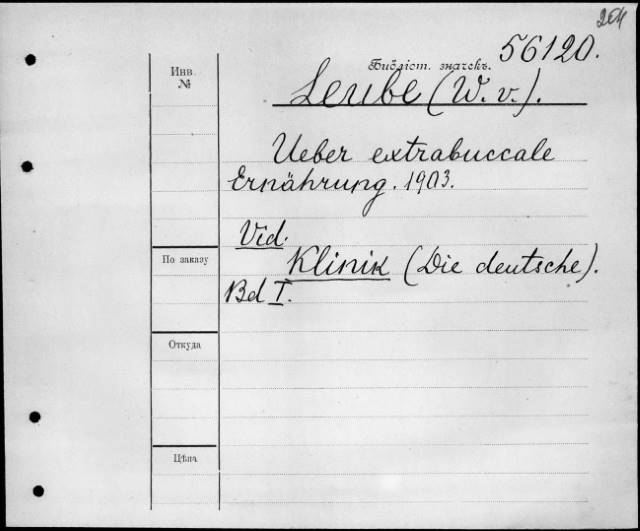 204
56120.
Библіот. значекъ.
Инв.
№
Leube (W. v.).
Ueber extrabuccale
Ernährung. 1903.
Vid.
Klinik (Die deutsche).
По заказу
Bd I.
Откуда
Цѣна